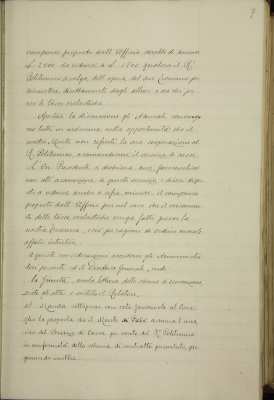 compenso proposto dall'Ufficio sarebbe di annue
£ 2.500 da ridursi a £ 1.500 qualora il R°
Politecnico avvalga dell'opera del suo Economo per
riscuotere direttamente dagli allievi e da chi per
essi le tasse scolastiche.
Apertasi la discussione gli Adunati convengo-
no tutti in massima nella opportunità che il
nostro Monte non rifiuti la sua cooperazione al
R. Politecnico, assumendone il servizio di cassa.
L'On. Presidente si dichiara, pure, favorevolissi-
mo all'assunzione di questo servizio, e si dice dispo-
sto a ridurre anche a cifra minore il compenso
proposto dall'Ufficio pur che il versamen-
to delle tasse scolastiche venga fatto presso la
nostra Tesoreria, e ciò per ragione di ordine morale
affatto intuitiva.
A queste considerazioni accedono gli Amministra-
tori presenti ed il Direttore Generale, onde
la Giunta, avuta lettura dello schema di convenzione,
visti gli atti e sentito il Relatore,
Manda rassegnare con voto favorevole al Cons.
glio la proposta che il Monte di Pietà assuma l'eser-
cizio del servizio di Cassa per conto del R° Politecnico
in conformità dello schema di contratto presentato, pro-
ponendo inoltre: